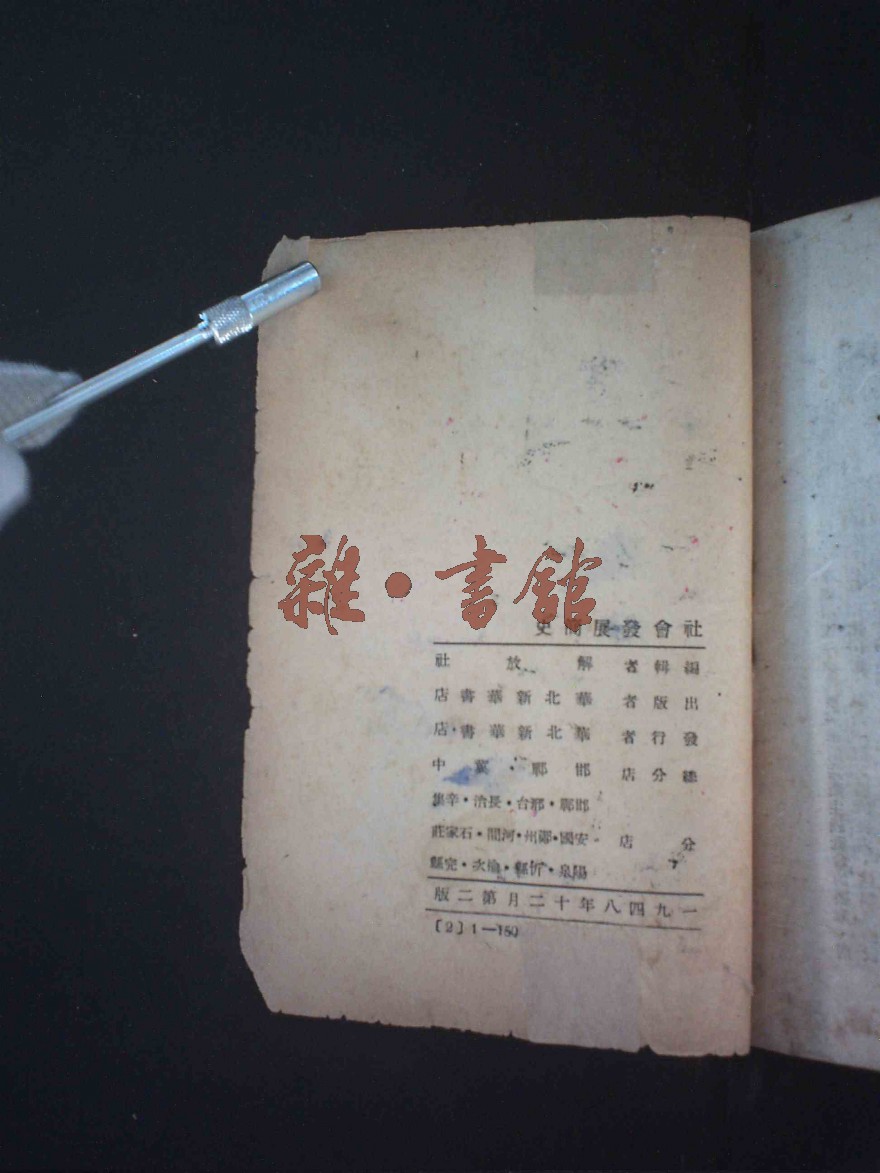 雜·書館
社會發展簡史
編輯者 解放社
出版者 華北新華書店
發行者 華北新華書店
總分店 邯鄲·冀中
邯鄲·邢台·長治·辛集
分店 安國·鄭州·河間·石家莊
陽泉·忻縣·榆次·完縣
一九四八年十二月第二版
〔2〕1—150